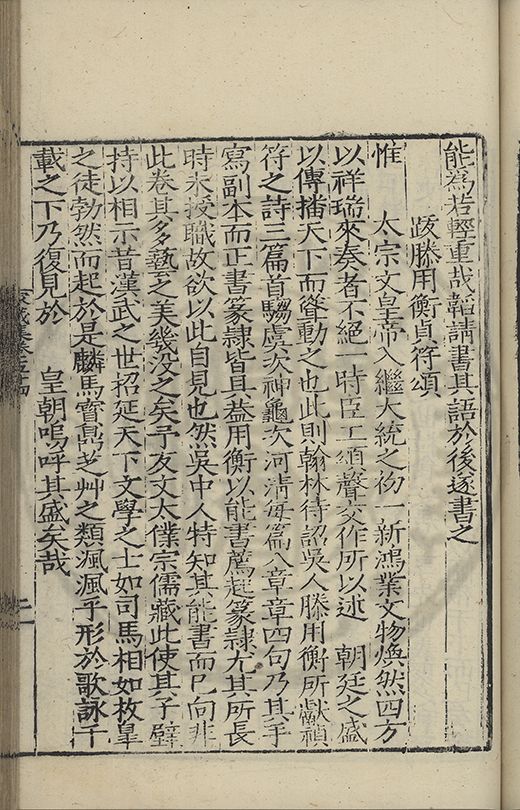 能為若輕重哉韜請書其語於後遂書之
跋滕用衡貞符頌
惟　太宗文皇帝入繼大統之初一新鴻業文物煥然四方
以祥瑞來奏者不絕一時臣工頌聲交作所以述　朝廷之盛
以傳播天下而聳動之也此則翰林待詔吳人滕用衡所獻禎
符之詩三篇首騶虞次神龜次河清每篇八章章四句乃其手
寫副本而正書篆隸皆具葢用衡以能書薦起篆隸尤其所長
時未授職故欲以此自見也然吳中人特知其能書而已向非
此卷其多藝之美幾没之矣予友文太僕宗儒藏此使其子壁
持以相示昔漢武之世招延天下文學之士如司馬相如枚臯
之徒勃然而起於是麟馬寶鼎芝艸之類渢渢乎形於歌詠千
載之下乃復見於　皇朝嗚呼其盛矣哉